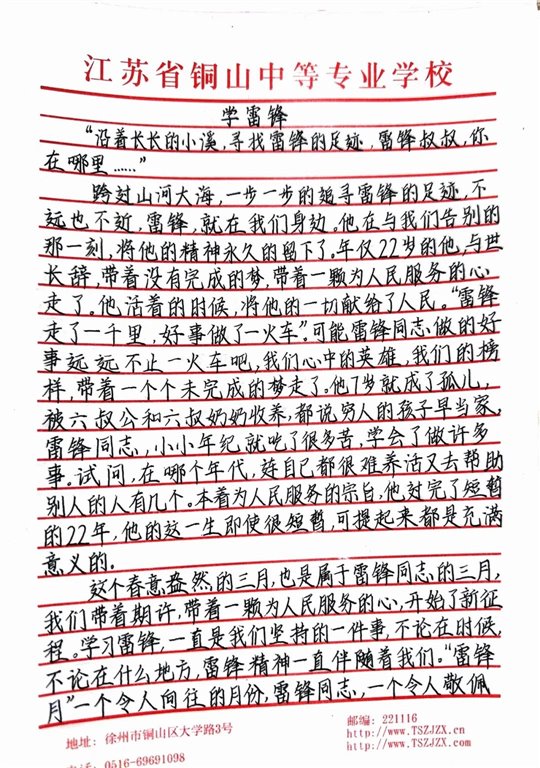 江苏省铜山中等专业学校
学雷锋
“沿着长长的小溪,寻找雷锋的足迹,雷锋叔叔,你
在哪里……”
跨过山河大海,一步一步的追寻雷锋的足迹,不
远也不近,雷锋,就在我们身边。他在与我们告别的
那一刻,将他的精神永久的留下了。年仅22岁的他,与世
长辞,带着没有完成的梦,带着一颗为人民服务的心
走了。他活着的时候,将他的一切献给了人民。“雷锋
走了一千里,好事做了一火车”。可能雷锋同志做的好
事远远不止一火车吧,我们心中的英雄,我们的榜
样,带着一个个未完成的梦走了。他7岁就成了孤儿,
被六叔公和六叔奶奶收养,都说穷人的孩子早当家,
雷锋同志,小小年纪就吃了很多苦,学会了做许多
事。试问,在哪个年代,连自己都很难养活又去帮助
别人的人有几个。本着为人民服务的宗旨,他过完了短暂
的22年,他的这一生即使很短暂,可提起来都是充满
意义的。
这个春意盎然的三月,也是属于雷锋同志的三月,
我们带着期许,带着一颗为人民服务的心,开始了新征
程。学习雷锋,一直是我们坚持的一件事,不论在时候,
不论在什么地方,雷锋精神一直伴随着我们。“雷锋
月”一个令人向往的月份,雷锋同志,一个令人敬佩
地址:徐州市铜山区大学路3号
邮编:221116
http://www.TSZJZX.cn
电话:0516-69691098
http://www.TSZJZX.com